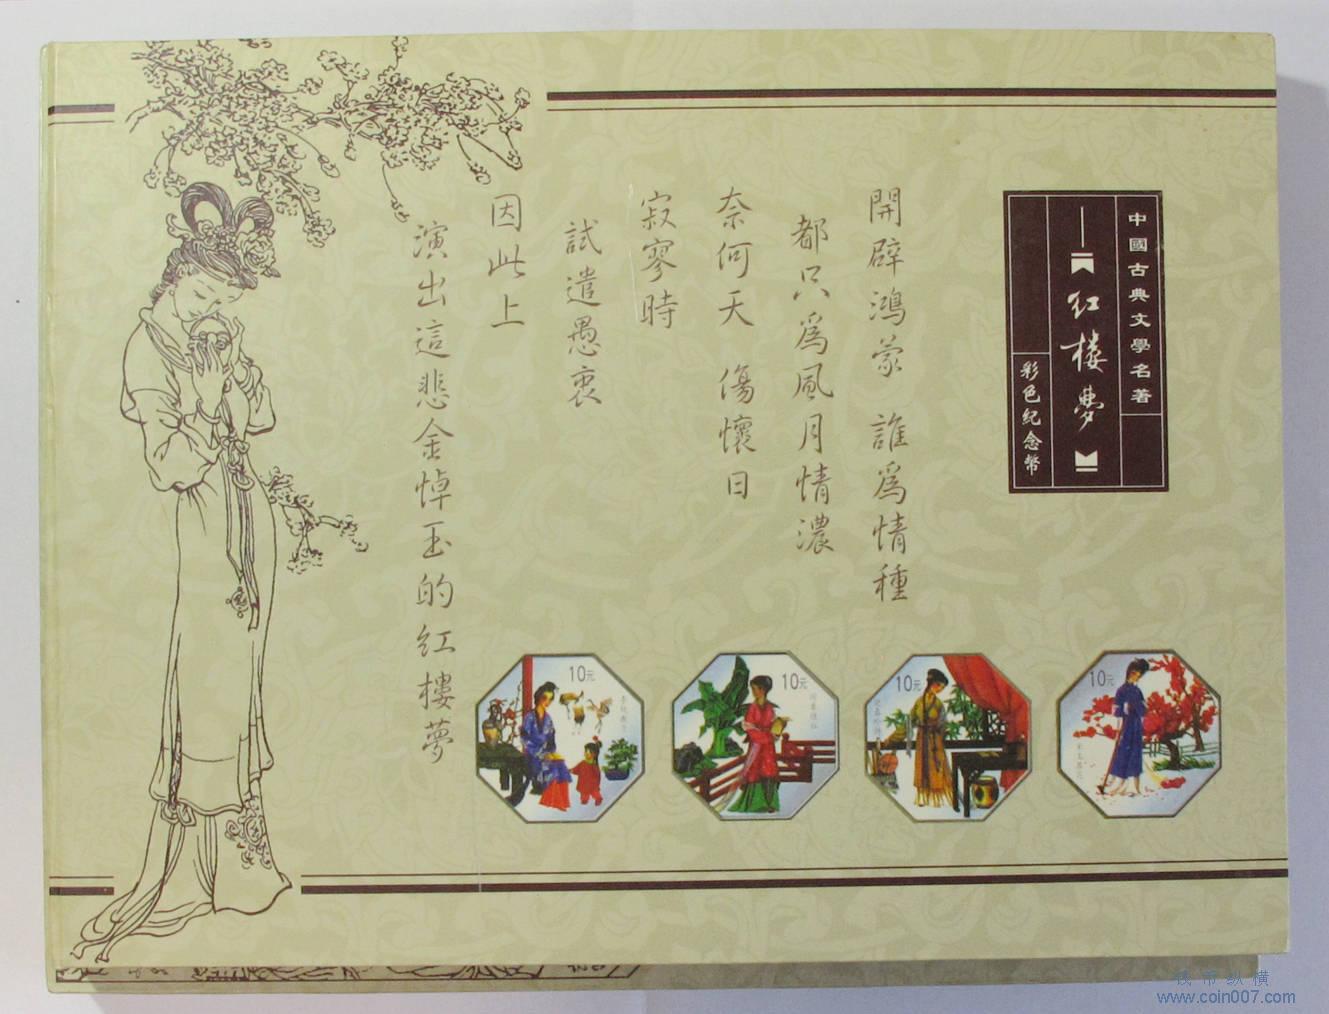 中國古典文學名著
紅樓夢
彩色纪念幣
開辟鴻蒙 誰爲情種
都只爲風月情濃
奈何天 傷懷日
寂寥時
試遣愚衷
因此上
演出這悲金悼玉的红樓夢
10元
10元
10元
10元
钱币纵横
www.coin007.com